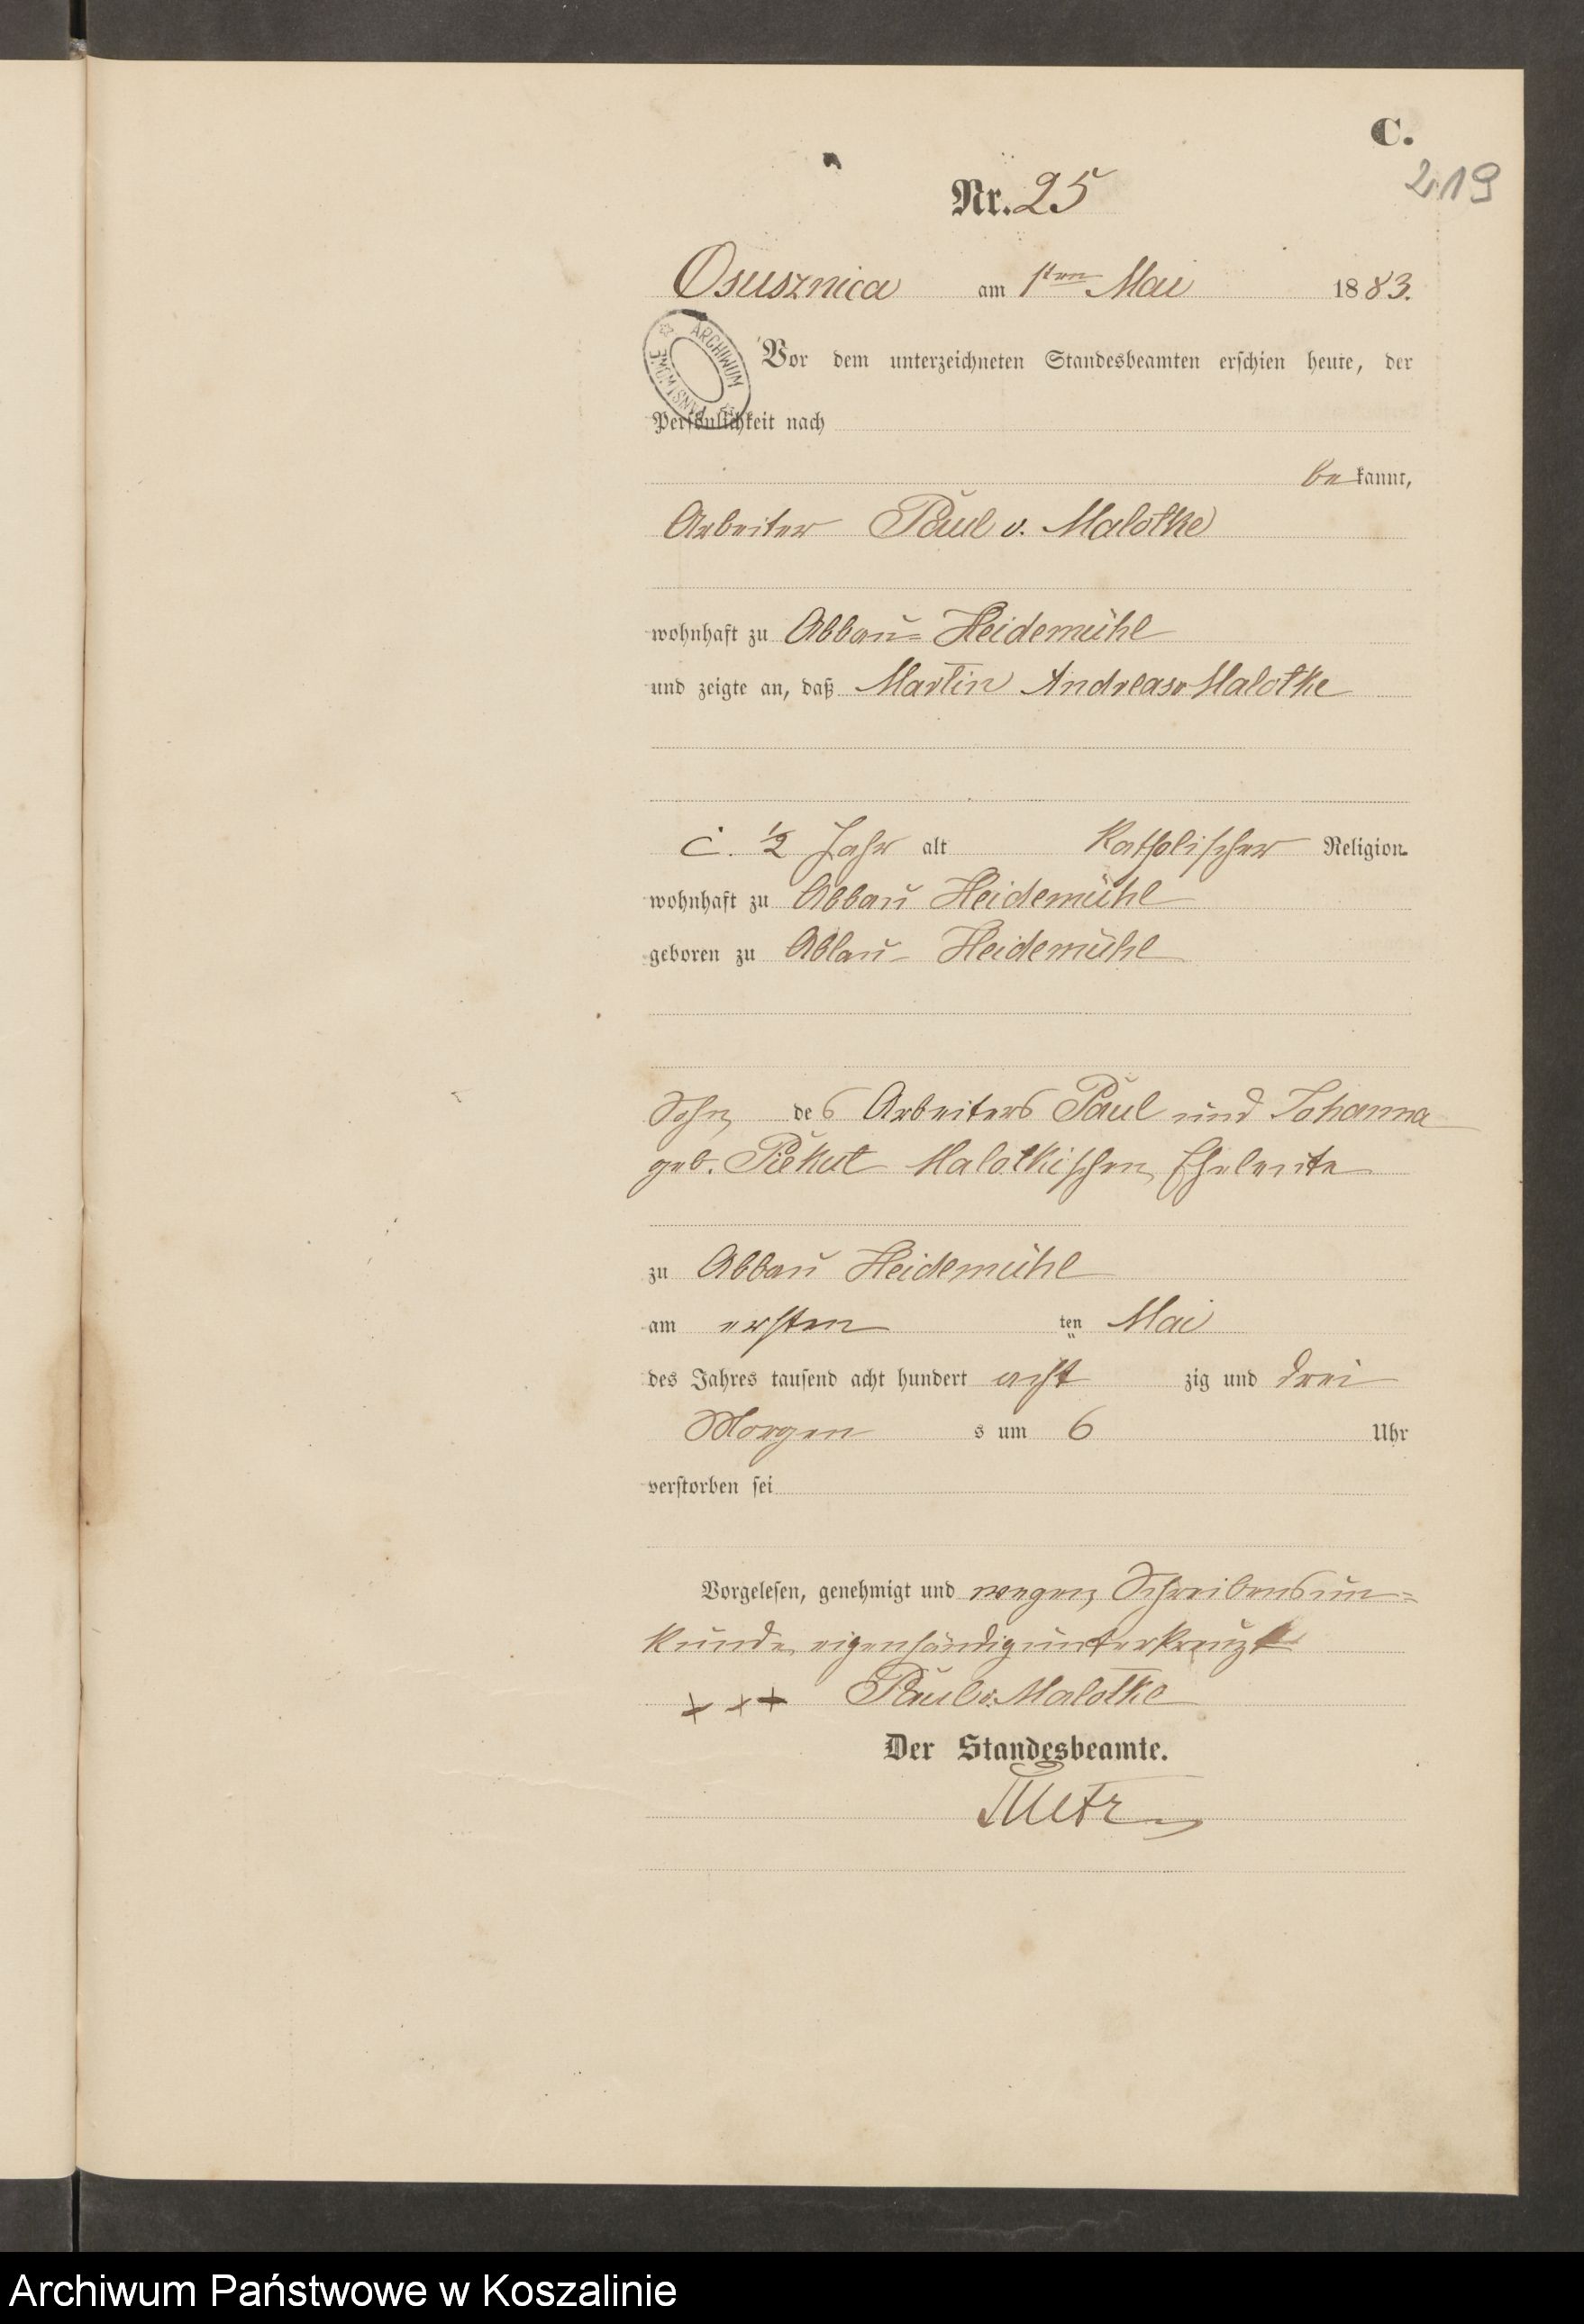 C.
219
Nr. 25
Osusznica am 1ten Mai 1883.
Vor dem unterzeichneten Standesbeamten erschien heute, der
Persönlichkeit nach
be kannt,
Arbeiter Paul v. Malotke
wohnhaft zu Abbau-Heidemühl
und zeigte an, daß Martin Andreas v Malotke
c. ½ Jahr alt Katholischer Religion
wohnhaft zu Abbau Heidemühl
geboren zu Abbau-Heidemühl
Sohn des Arbeiters Paul und Johanna
geb. Piekut Malotkischen Eheleute
zu Abbau Heidemühl
am ersten ten Mai
des Jahres tausend acht hundert acht zig und drei
Morgen s um 6 Uhr
verstorben sei
Vorgelesen, genehmigt und wegen Schreibensun=
kunde eigenhändig unterkreuzt
+ + + Paul v. Malotke
Der Standesbeamte.
ARCHIWUM PAŃSTWOWE
Archiwum Państwowe w Koszalinie